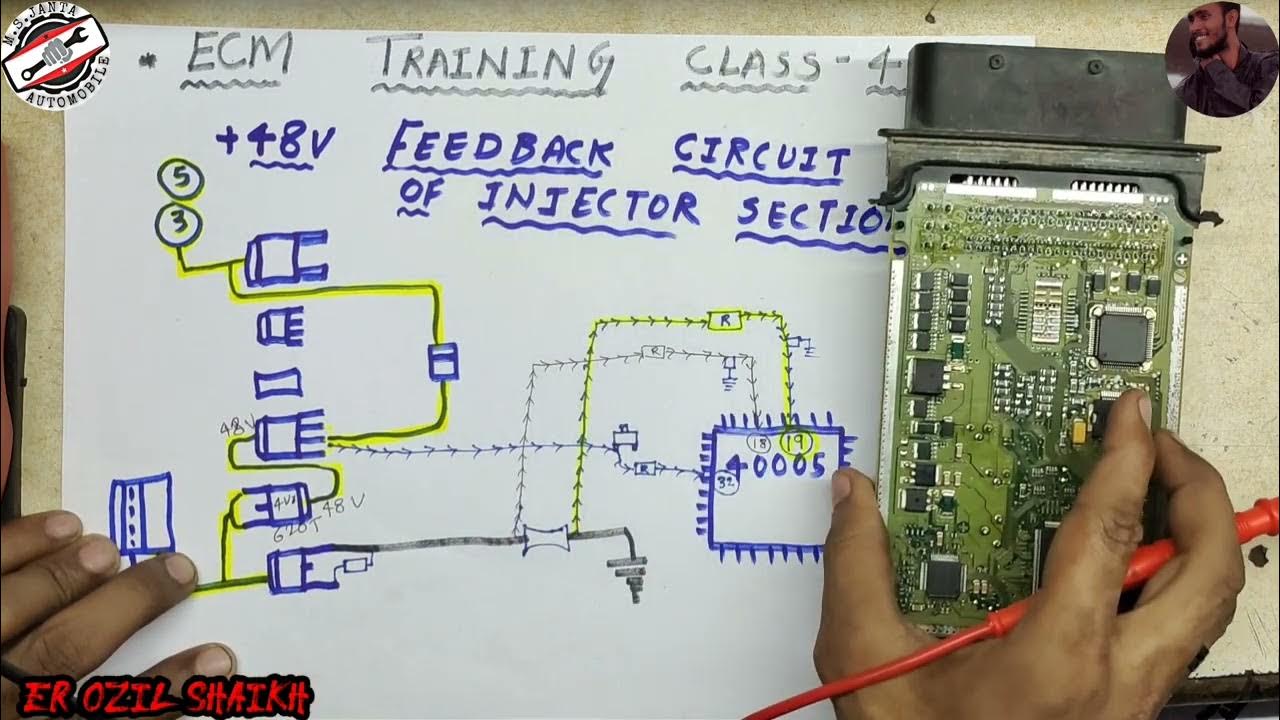 M.S. JANTA
AUTOMOBILE
* ECM TRAINING CLASS - 4
+48V FEEDBACK CIRCUIT
OF INJECTOR SECTION
5
3
R
R
48V
18
19
40005
R
32
48V
620T
ER OZIL SHAIKH